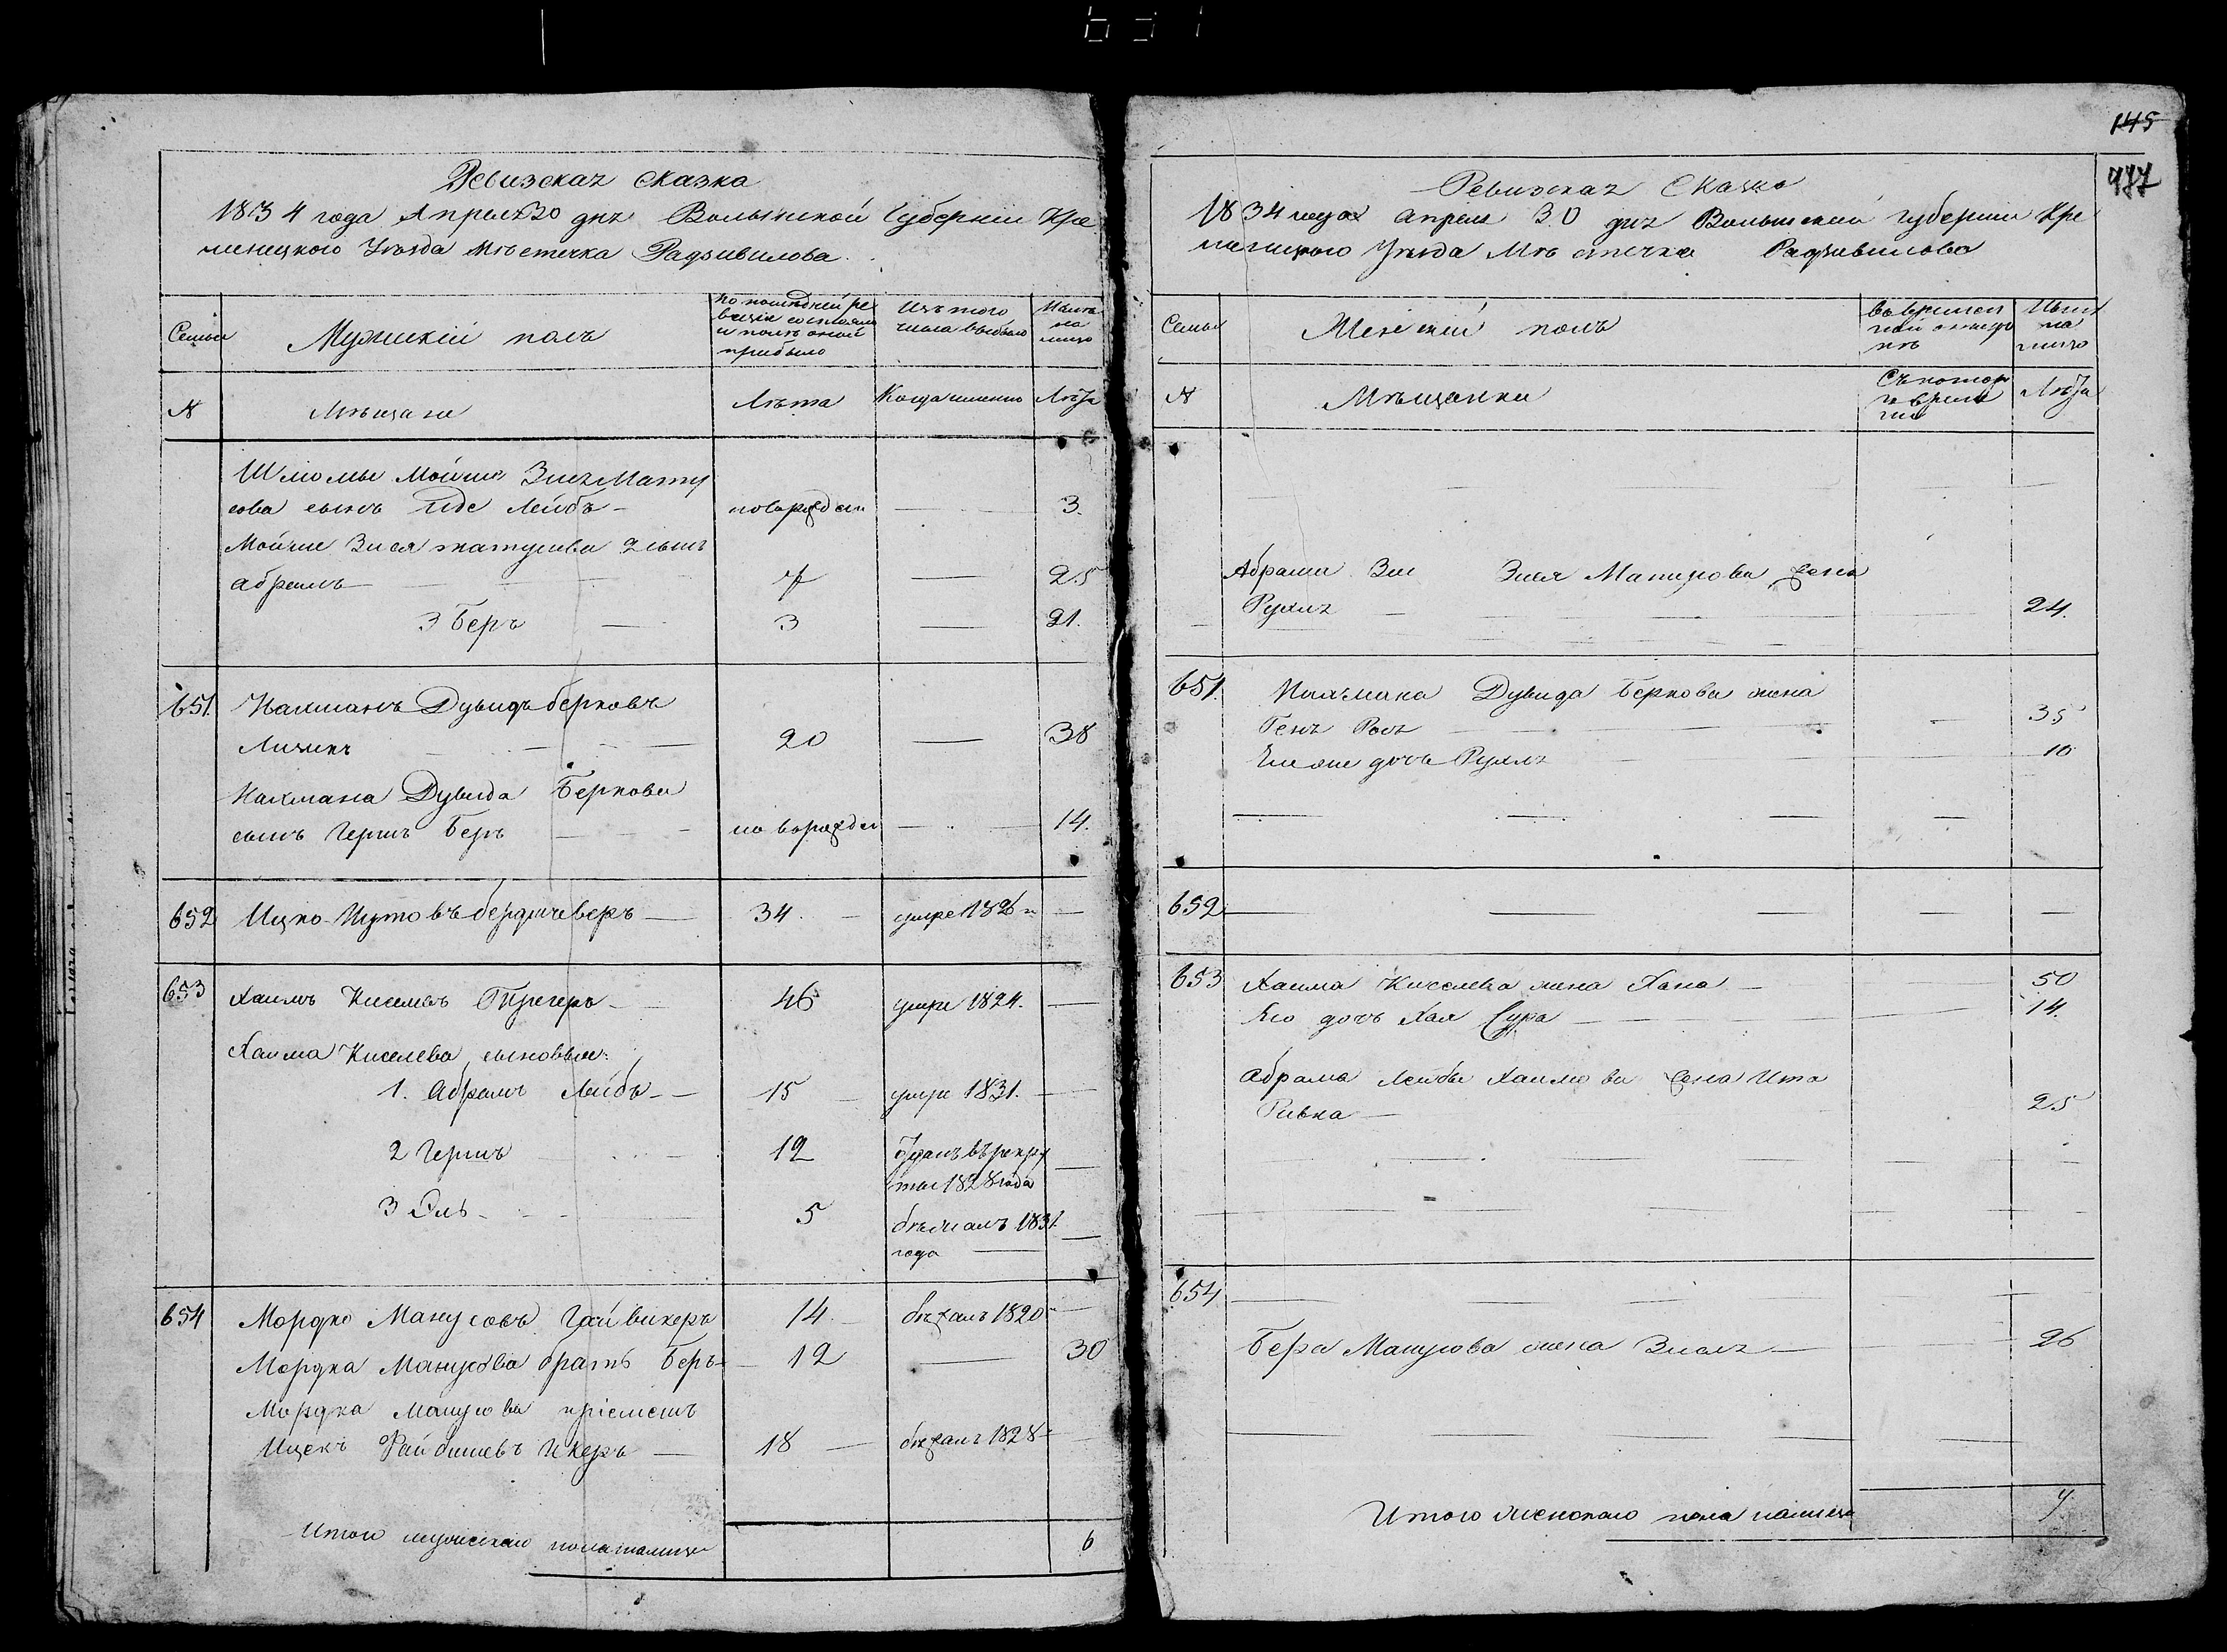 145
777
Ревизская Сказка
1834 года Апреля 30 дня Волынской Губернии Кре
менецкого Уѣзда Мѣстечка Радзивилова
Семьи
Мужеский полъ
по последней ре
визіи состояло
и послѣ оной
прибыло
Изъ того
числа выбыло
Нынѣ
на
лицо
№
Мѣщане
Лѣта
Когда именно
Лѣта
Шлиомы Мойше Зися Мату
сова сынъ Лейбъ
новорожден
3
Мойше Зися матусова 2 сынъ
абрамъ
7
25
3 Беръ
3
21.
651.
Нахманъ Дувидъ берковъ
20
38
Нахмана Дувида Беркова
сынъ Герш Беръ
новорожден
14.
652
Ицко Шутовъ бердичеверъ
34
умре 1826
653
Хаимъ Киселевъ
46
умре 1824.
Хаима Киселева сыновья:
1. Абрамъ Лейбъ
15
умре 1831.
2 Гершъ
12
отданъ въ рекру
ты 1828 года
3 Эль
5
бѣжалъ 1831
года
654
Мордко Манусовъ
14
бѣжалъ 1820
Мордка Манусова братъ Беръ
12
30
Мордка Манусова пріемышъ
Ицекъ Файбишевъ
18
бѣжалъ 1828
Итого мужеского пола налицо
6
Ревизская Сказка
1834 года апреля 30 дня Волынской губернии Кре
менецкого Уѣзда Мѣстечка Радзивилова
Семьи
Женскій полъ
во времен
ной отлуч
кѣ
Нынѣ
на
лицо
№
Мѣщанки
Съ котор
време
ни
Лѣта
Абрама Зис Зися Матусова жена
Рухля
24.
651.
Нахмана Дувида Беркова жена
Геня Рося
35
Ея же дочь Рухля
10
652
653
Хаима Киселева жена Хана
50
Его дочь Хая Сура
14.
Абрама Лейбы Хаимова жена Ита
Ривка
25
654
Бера Манусова жена Зися
26
Итого женского пола налицо
7